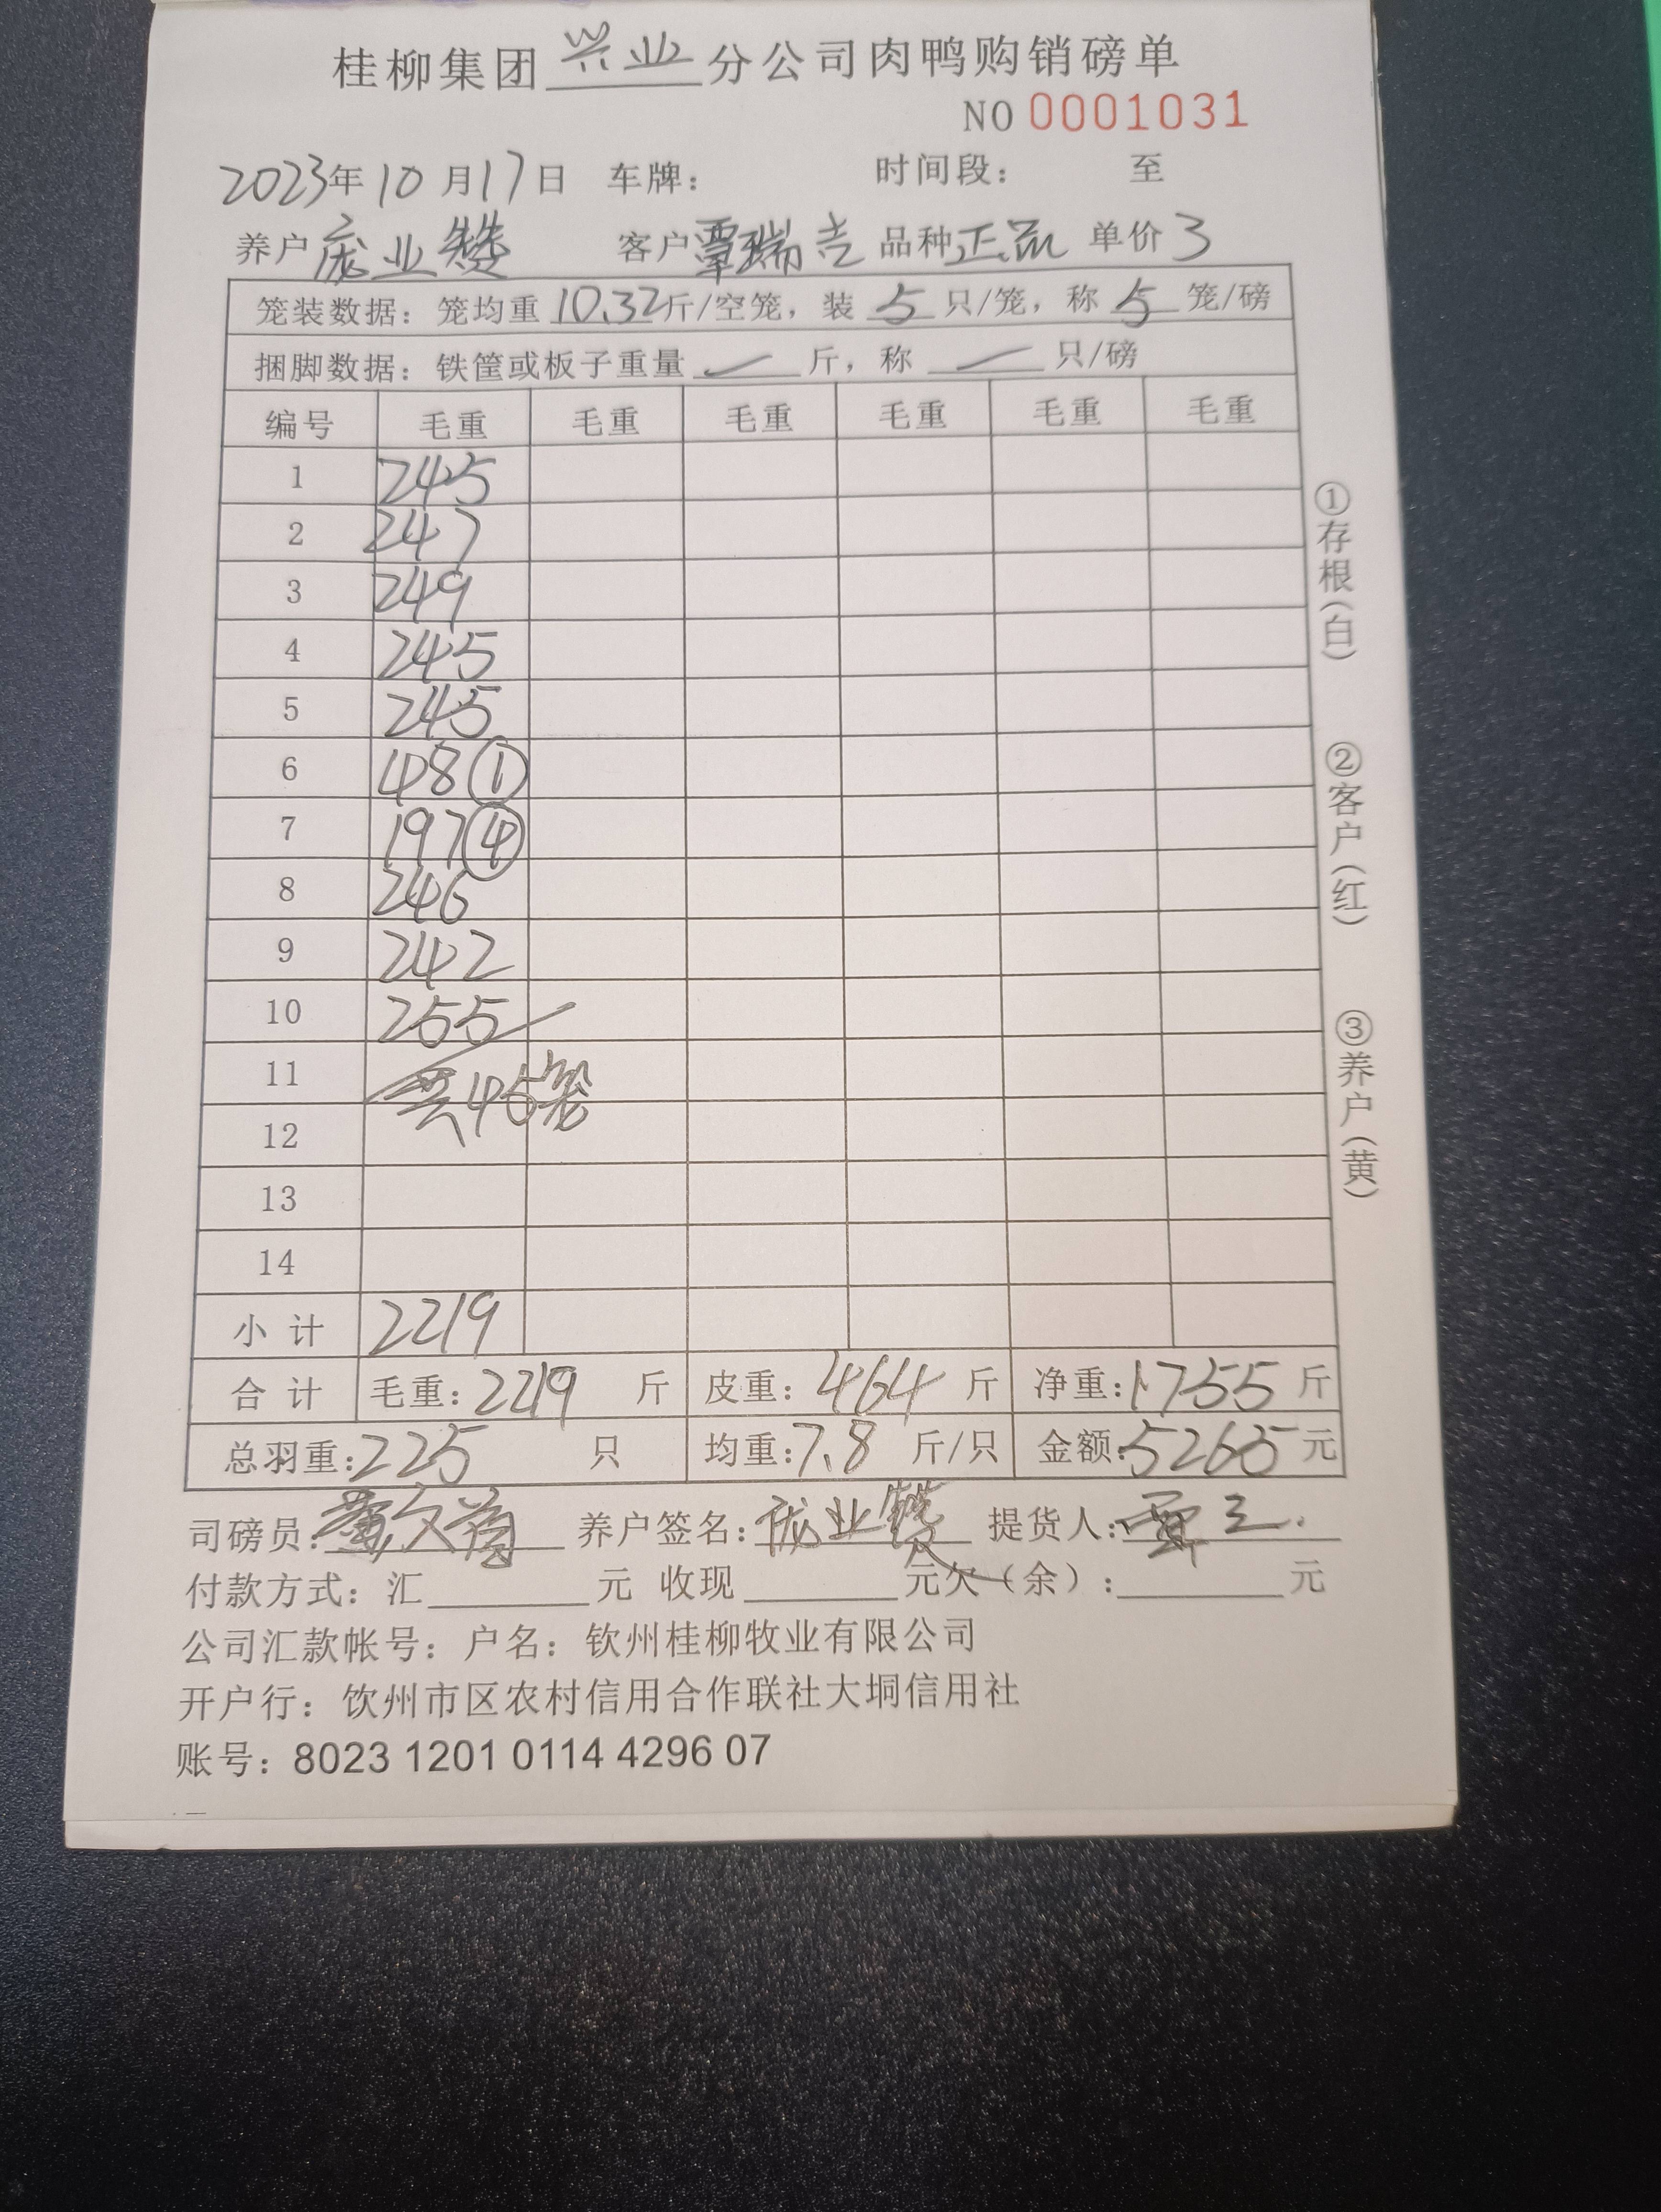 桂柳集团兴业分公司肉鸭购销磅单
NO 0001031
2023年10月17日 车牌： 时间段： 至
养户庞业赞 客户覃瑞吉 品种正品 单价3
笼装数据：笼均重10.32斤/空笼，装5只/笼，称5笼/磅
捆脚数据：铁筐或板子重量 斤，称 只/磅
编号 毛重 毛重 毛重 毛重 毛重 毛重
1 245
2 247
3 249
4 245
5 245
6 48①
7 197④
8 246
9 242
10 255
11 共45笼
12
13
14
小计 2219
合计 毛重：2219斤 皮重：464斤 净重：1755斤
总羽重：225只 均重：7.8斤/只 金额：5265元
司磅员： 养户签名：庞业赞 提货人：覃
付款方式：汇 元 收现 元欠（余）： 元
公司汇款帐号：户名：钦州桂柳牧业有限公司
开户行：钦州市区农村信用合作联社大垌信用社
账号：8023 1201 0114 4296 07
①存根（白）
②客户（红）
③养户（黄）